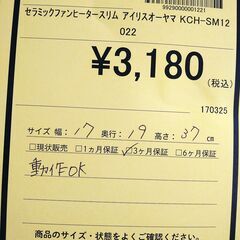 99290000001221
セラミックファンヒータースリム アイリスオーヤマ KCH-SM12
022
¥3,180
(税込)
170325
サイズ 幅: 17 奥行: 19 高さ: 37 cm
□現状販売 □1ヵ月保証 ☑3ヶ月保証 □6ヶ月保証
動作OK
商品のサイズ・状態をよくご確認ください